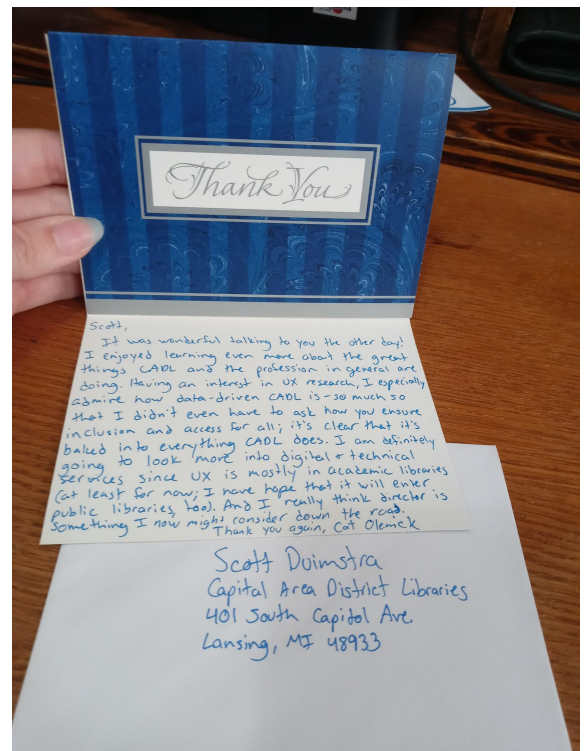 Thank You
Scott,
It was wonderful talking to you the other day!
I enjoyed learning even more about the great
things CADL and the profession in general are
doing. Having an interest in UX research, I especially
admire how data-driven CADL is - so much so
that I didn't even have to ask how you ensure
inclusion and access for all; it's clear that it's
baked into everything CADL does. I am definitely
going to look more into digital & technical
services since UX is mostly in academic libraries
(at least for now; I have hope that it will enter
public libraries, too). And I really think director is
something I now might consider down the road.
Thank you again, Cat Olemick
Scott Duimstra
Capital Area District Libraries
401 South Capitol Ave.
Lansing, MI 48933